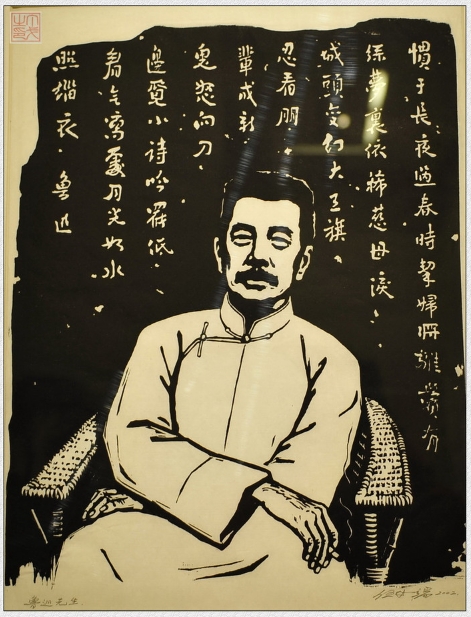 慣于長夜過春時挈婦將雛鬢有
絲夢裏依稀慈母淚
城頭變幻大王旗
忍看朋
輩成新
鬼怒向刀
邊覓小詩吟罷低
眉无寫處月光如水
照緇衣 魯迅
魯迅先生
2002